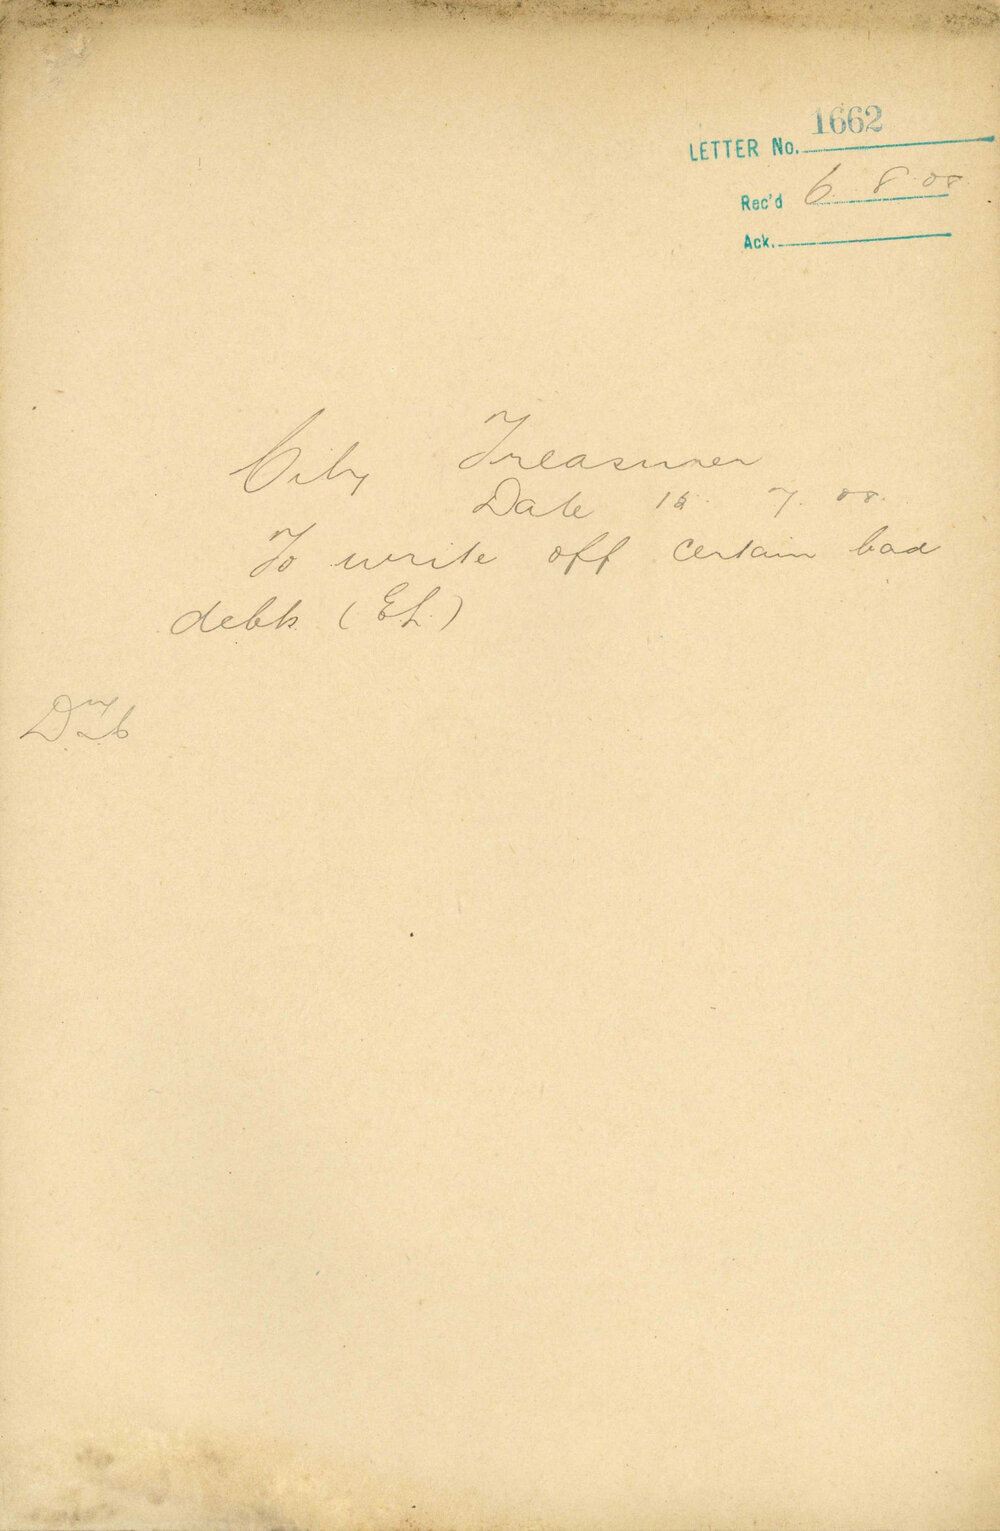 1662
LETTER No.
Rec'd 6. 8. 08.
Ack.
City Treasurer
Date 7. 08.
To write off certain bad
debts (EL)